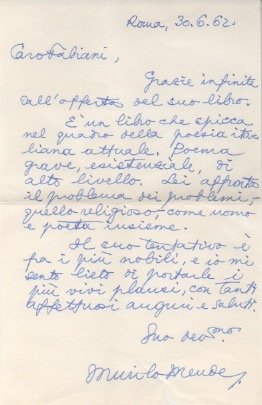 Roma, 30.6.62.
Caro Fabiani,
Grazie infinite
dell'offerta del suo libro.
È un libro che spicca
nel quadro della poesia ita-
liana attuale. Poema
grave, esistenziale, di
alto livello. Lei affronta
il problema dei problemi,-
quello religioso,-come uomo
e poeta insieme.
Il suo tentativo è
fra i più nobili, e io mi
sento lieto di portarle i
più vivi plausi, con tanti
affettuosi auguri e saluti.
Suo dev.mo
Murilo Mendes